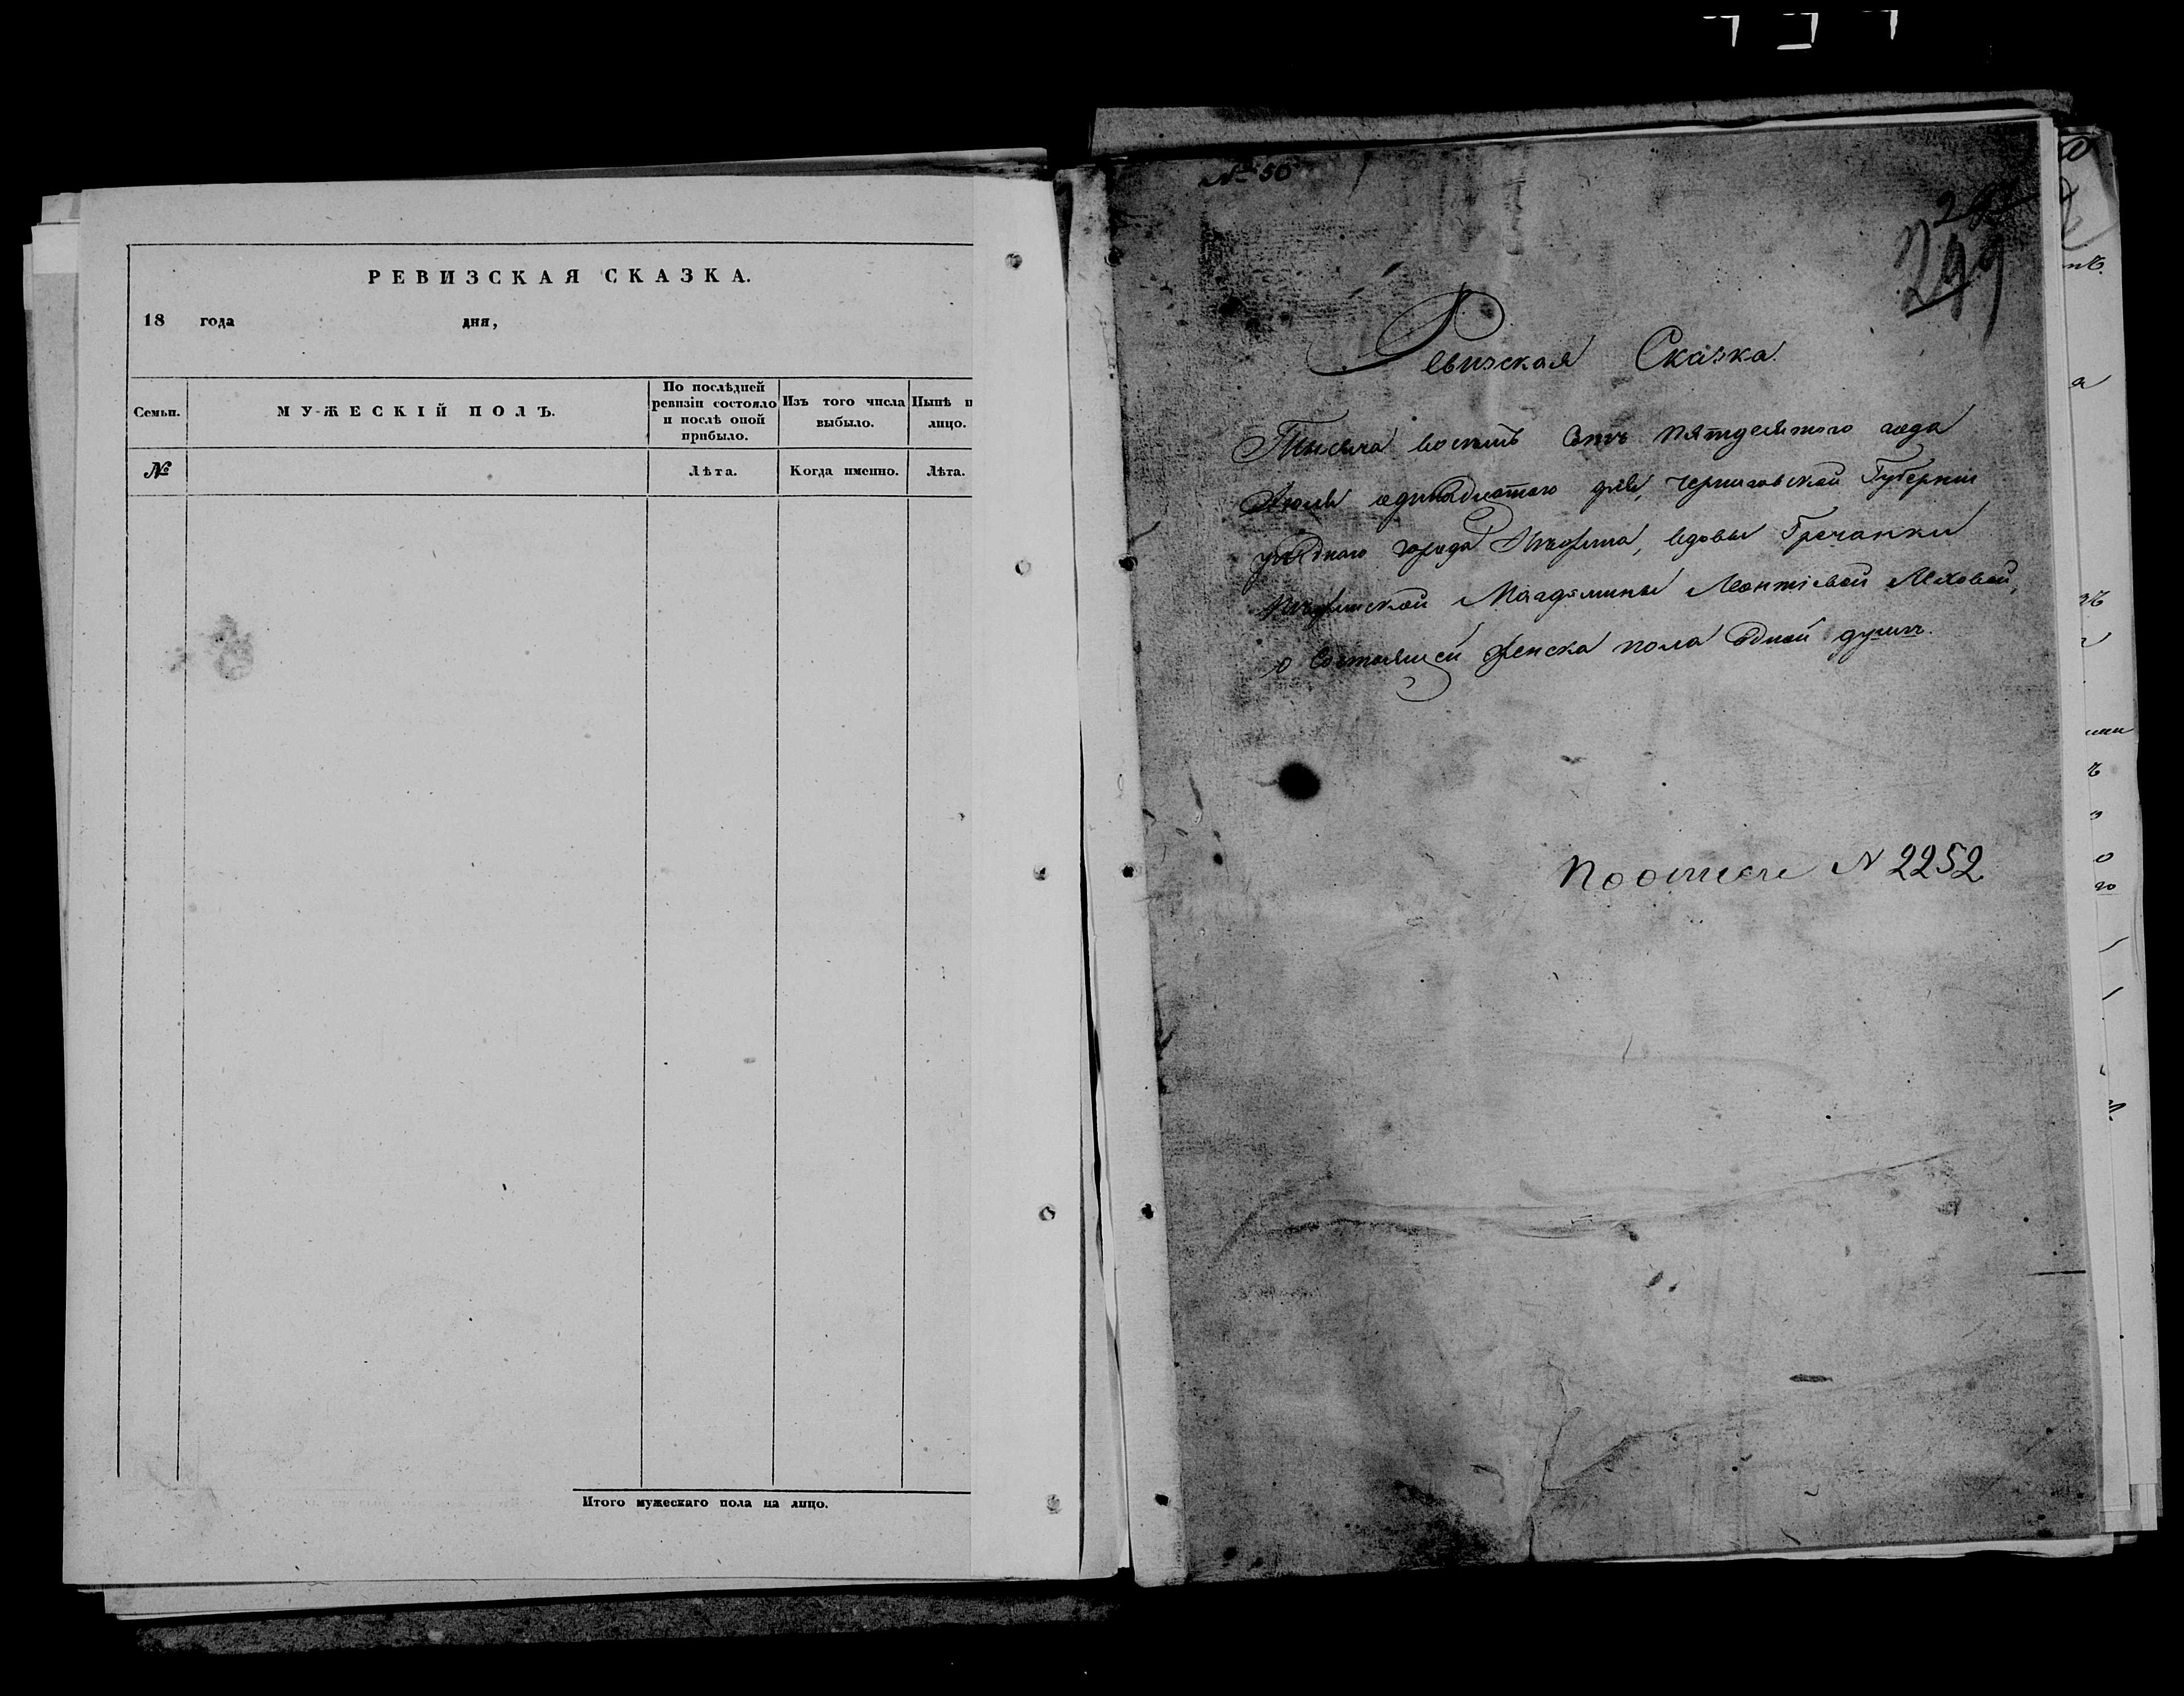 РЕВИЗСКАЯ СКАЗКА.
18 года дня,
Семьи.
МУЖЕСКІЙ ПОЛЪ.
По послѣдней
ревизіи состояло
и послѣ оной
прибыло.
Изъ того числа
выбыло.
Нынѣ н
лицо.
№
Лѣта.
Когда именно.
Лѣта.
Итого мужескаго пола на лицо.
№ 56
299
Ревизская Сказка.
Тысяча восемъ Сотъ пятдесятого года
Іюля одинадцатого дня, Черниговской Губерніи
уѣзднаго города Нѣжина, вдовы Гречанки
Нѣжинской Магдалины Леонтіевой
о состоящей женска пола одной душѣ.
N 2252